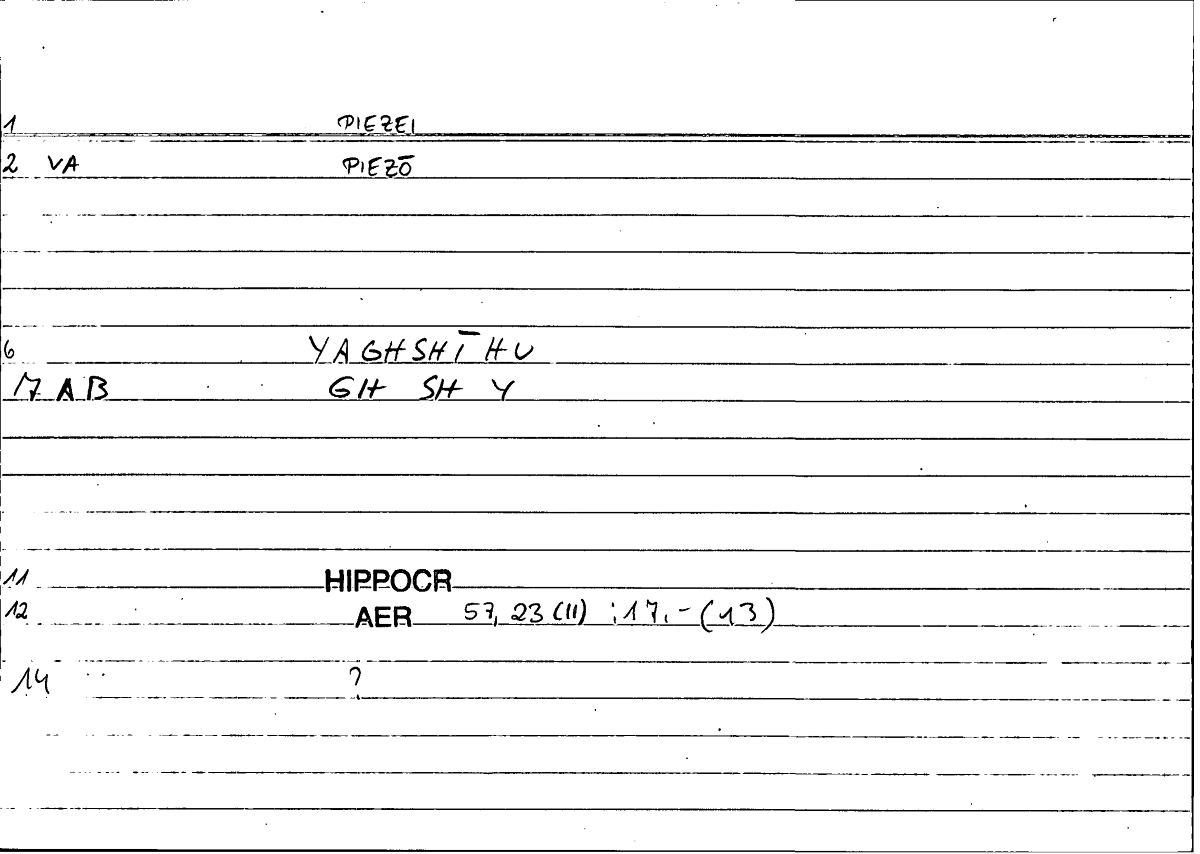 1 PIEZEI
2 VA PIEZŌ
6 YAGHSHĪHU
7 AB GH SH Y
11 HIPPOCR
12 AER 57, 23 (11) ; 17,-(13)
14 ?